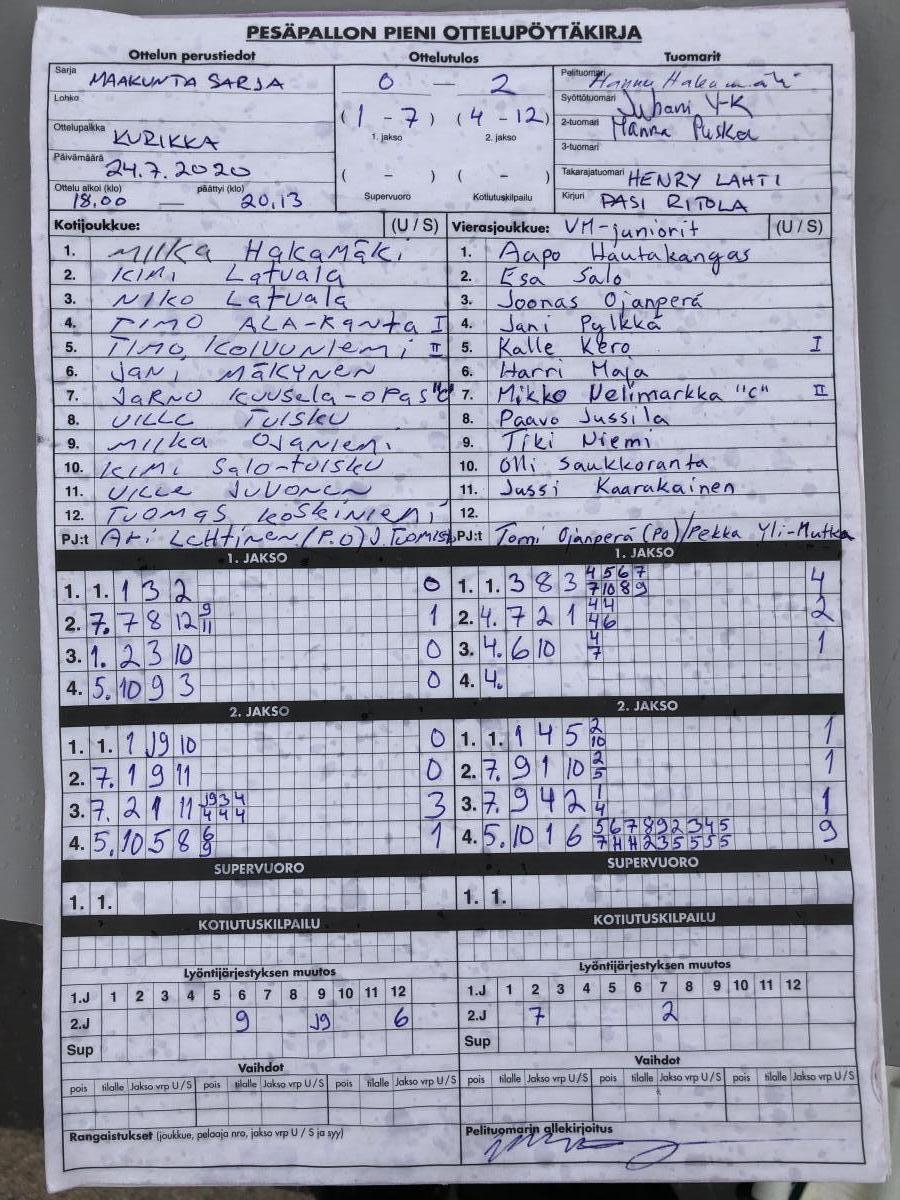 PESÄPALLON PIENI OTTELUPÖYTÄKIRJA
Ottelun perustiedot
Sarja MAAKUNTA SARJA
Lohko
Ottelupaikka KURIKKA
Päivämäärä 24.7.2020
Ottelu alkoi (klo) päättyi (klo)
18.00 — 20.13
Ottelutulos
0 — 2
(1 - 7) (4 - 12)
1. jakso 2. jakso
( - ) ( - )
Supervuoro Kotiutuskilpailu
Tuomarit
Pelituomari Hannu Hakamäki
Syöttötuomari Juhani Y-K
2-tuomari Manna Puska
3-tuomari
Takarajatuomari HENRY LAHTI
Kirjuri PASI RITOLA
Kotijoukkue: (U / S)
1. MIIKA HAKAMÄKI
2. KIMI LATVALA
3. NIKO LATVALA
4. TIMO ALA-KANTA I
5. TIMO KOIVUNIEMI II
6. JANI MÄKYNEN
7. JARNO KUUSELA-OPAS "C"
8. VILLE TUISKU
9. MIIKA OJANIEMI
10. KIMI SALO-TUISKU
11. VILLE JUVONEN
12. TUOMAS KOSKINIEMI
PJ:t ARI LEHTINEN (P.O) J.TUOMIST
Vierasjoukkue: VM-juniorit (U / S)
1. Aapo Hautakangas
2. Esa Salo
3. Joonas Ojanperä
4. Jani Pylkkä
5. Kalle Kero I
6. Harri Maja
7. Mikko Nelimarkka "C" II
8. Paavo Jussila
9. Tiki Niemi
10. Olli Saukkoranta
11. Jussi Kaarakainen
12.
PJ:t Tomi Ojanperä (PO)/Pekka Yli-Mutka
1. JAKSO
1. 1. 1 3 2 0
2. 7. 7 8 12 9 11 1
3. 1. 2 3 10 0
4. 5. 10 9 3 0
1. JAKSO
1. 1. 3 8 3 4 5 6 7 4
7 10 8 9
2. 4. 7 2 1 4 4 2
4 6
3. 4. 6 10 4 1
7
4. 4.
2. JAKSO
1. 1. 1 J9 10 0
2. 7. 1 9 11 0
3. 7. 2 1 11 J9 3 4 3
4 4 4
4. 5. 10 5 8 6 1
9
2. JAKSO
1. 1. 1 4 5 2 1
10
2. 7. 9 1 10 2 1
5
3. 7. 9 4 2 1 1
4
4. 5. 10 1 6 5 6 7 8 9 2 3 4 5 9
7 4 4 2 3 5 5 5 5
SUPERVUORO
1. 1.
SUPERVUORO
1. 1.
KOTIUTUSKILPAILU
KOTIUTUSKILPAILU
Lyöntijärjestyksen muutos
1.J 1 2 3 4 5 6 7 8 9 10 11 12
2.J 9 J9 6
Sup
Lyöntijärjestyksen muutos
1.J 1 2 3 4 5 6 7 8 9 10 11 12
2.J 7 2
Sup
Vaihdot
pois tilalle Jakso vrp U / S pois tilalle Jakso vrp U / S pois tilalle Jakso vrp U / S
Vaihdot
pois tilalle Jakso vrp U / S pois tilalle Jakso vrp U / S pois tilalle Jakso vrp U / S
Rangaistukset (joukkue, pelaaja nro, jakso vrp U / S ja syy)
Pelituomarin allekirjoitus